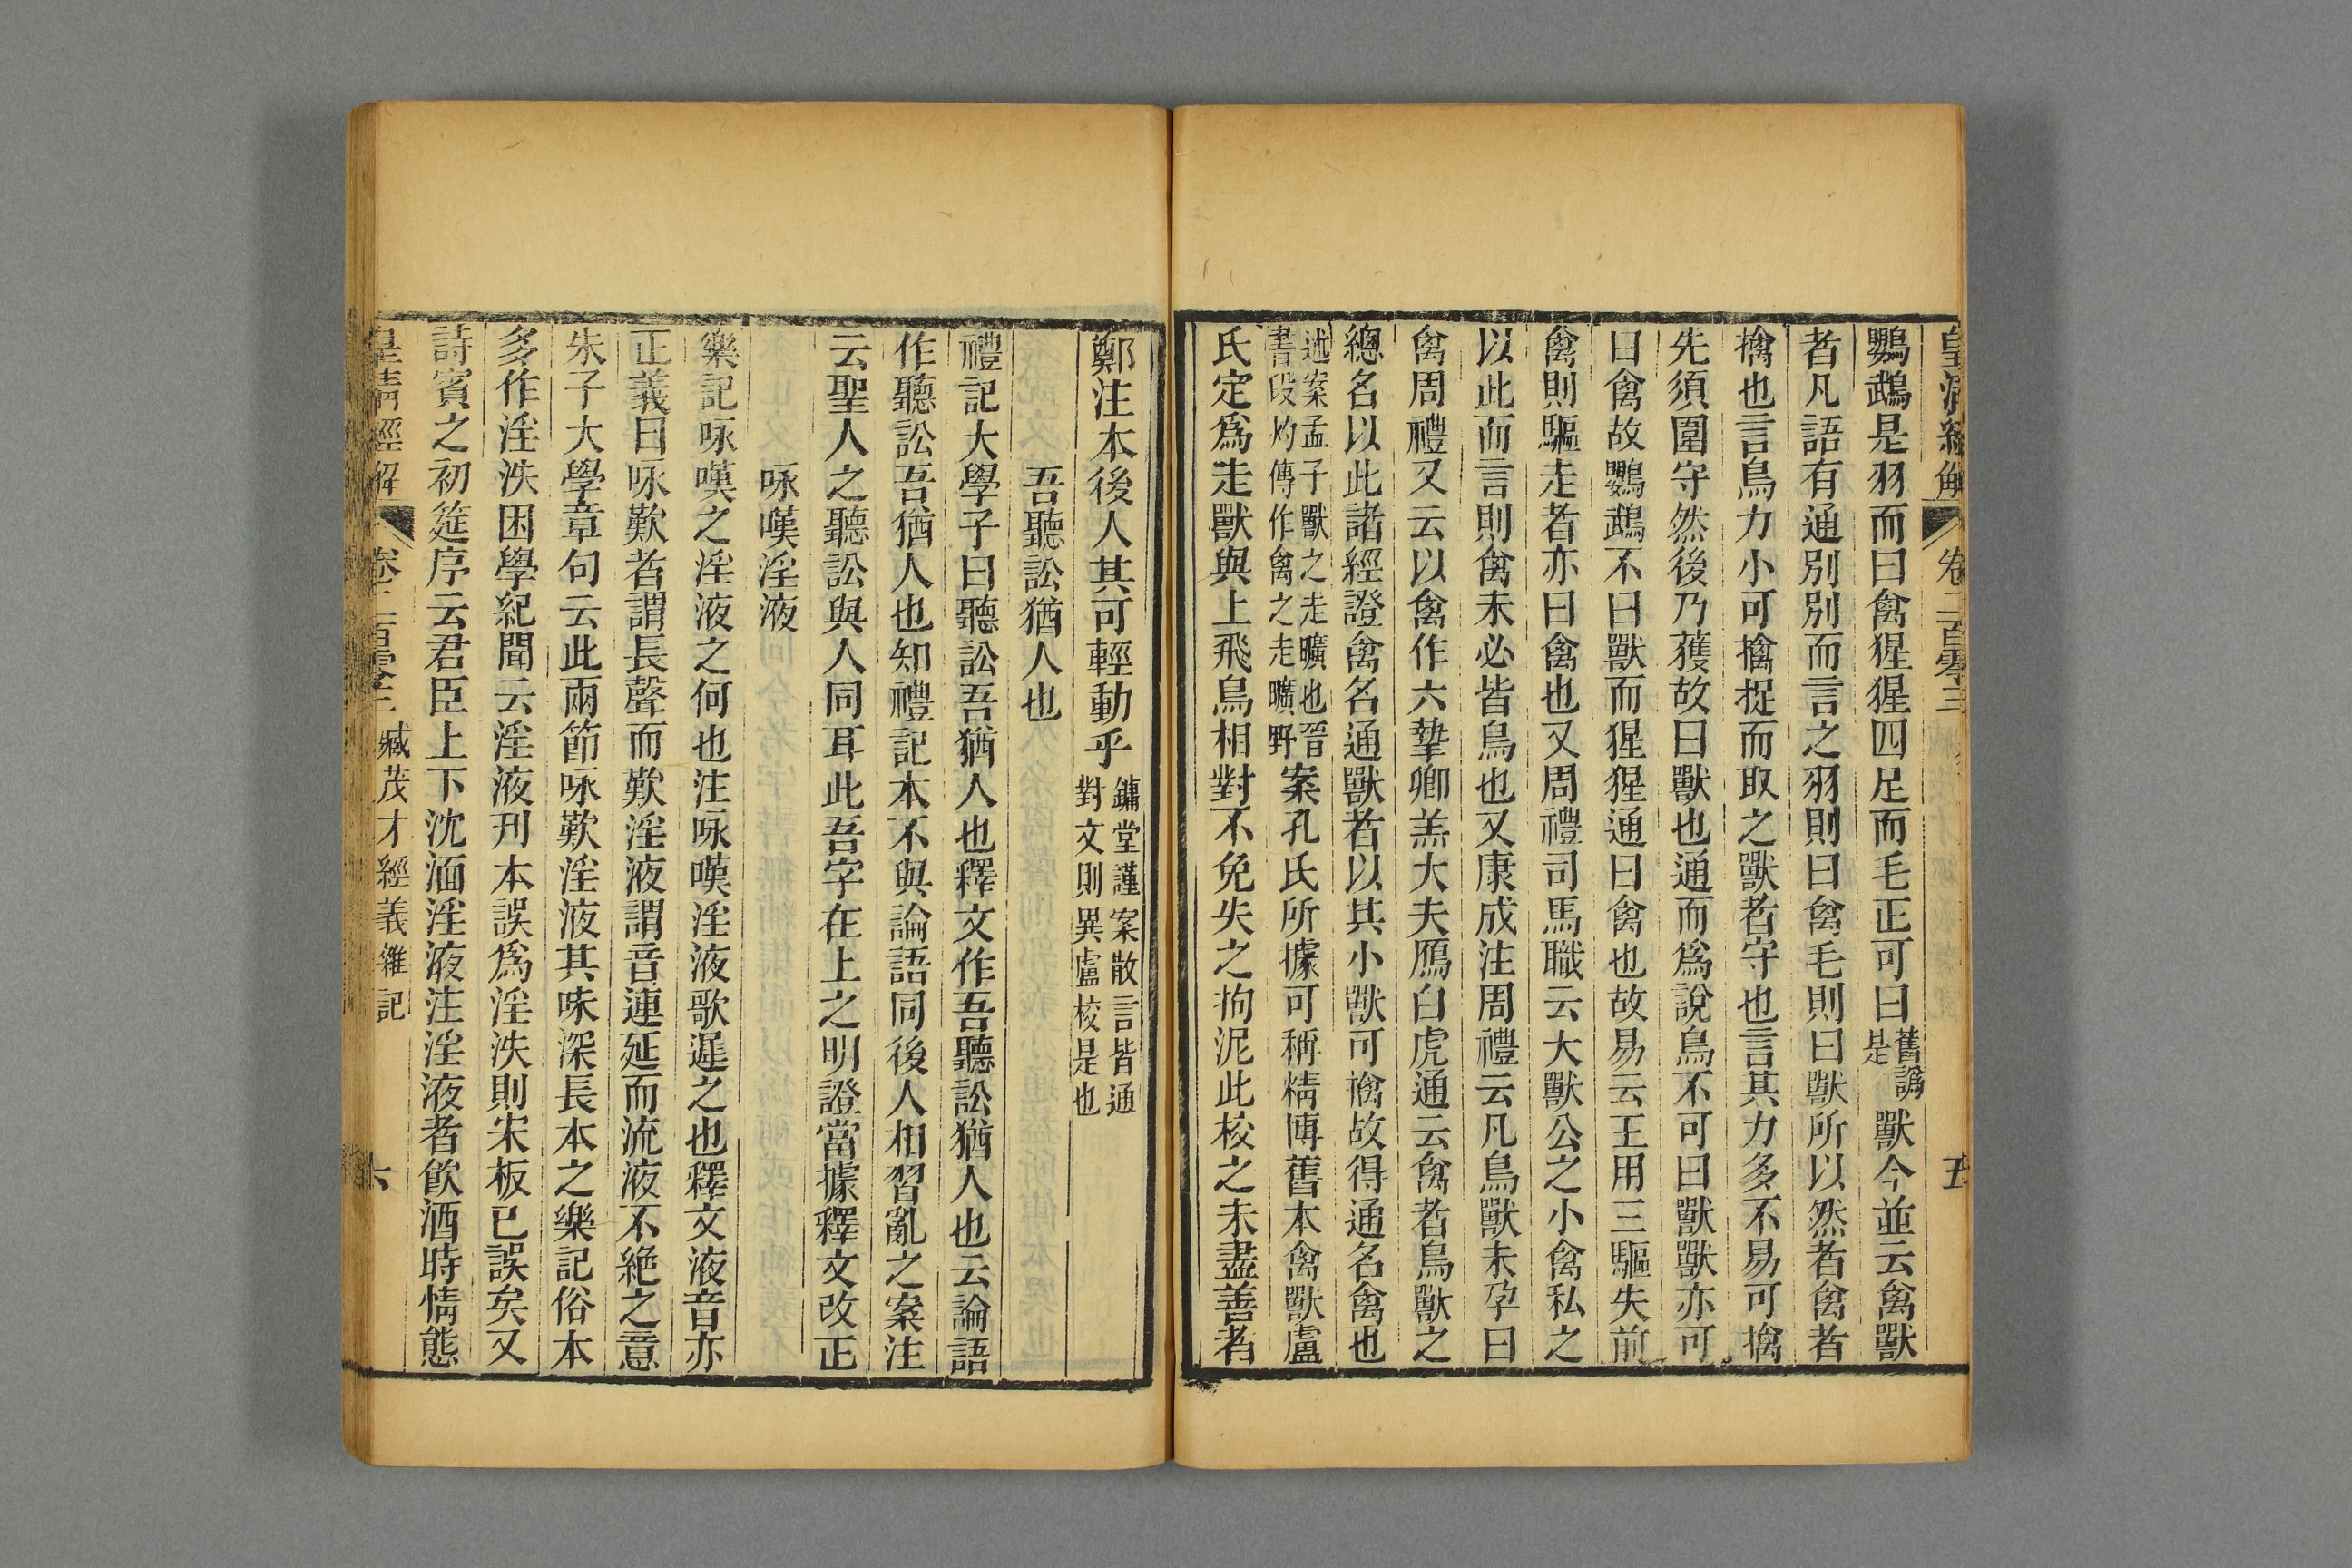 皇清經解 卷二百零三 五
鸚鵡是羽而曰禽猩猩四足而毛正可曰舊譌是獸今並云禽獸
者凡語有通別別而言之羽則曰禽毛則曰獸所以然者禽者
擒也言鳥力小可擒捉而取之獸者守也言其力多不易可擒
先須圍守然後乃獲故曰獸也通而爲說鳥不可曰獸獸亦可
曰禽故鸚鵡不曰獸而猩猩通曰禽也故易云王用三驅失前
禽則驅走者亦曰禽也又周禮司馬職云大獸公之小禽私之
以此而言則禽未必皆鳥也又康成注周禮云凡鳥獸未孕曰
禽周禮又云以禽作六摯卿羔大夫鴈白虎通云禽者鳥獸之
總名以此諸經證禽名通獸者以其小獸可擒故得通名禽也
述案孟子獸之走曠也晉書段灼傳作禽之走曠野案孔氏所據可稱精博舊本禽獸盧
氏定爲走獸與上飛鳥相對不免失之拘泥此校之未盡善者
鄭注本後人其可輕動乎鏞堂謹案散言皆通對文則異盧校是也
吾聽訟猶人也
禮記大學子曰聽訟吾猶人也釋文作吾聽訟猶人也云論語
作聽訟吾猶人也知禮記本不與論語同後人相習亂之案注
云聖人之聽訟與人同耳此吾字在上之明證當據釋文改正
咏嘆淫液
樂記咏嘆之淫液之何也注咏嘆淫液歌遲之也釋文液音亦
正義曰咏歎者謂長聲而歎淫液謂音連延而流液不絶之意
朱子大學章句云此兩節咏歎淫液其味深長本之樂記俗本
多作淫泆困學紀聞云淫液刊本誤爲淫泆則宋板已誤矣又
詩賓之初筵序云君臣上下沈湎淫液注淫液者飮酒時情態
皇清經解 卷二百零三 臧茂才經義雜記 六